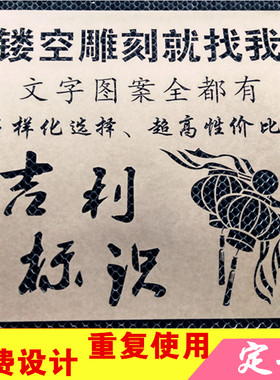 镂空雕刻就找我
文字图案全都有
样化选择、超高性价比
吉利
标识
费设计 重复使用
定